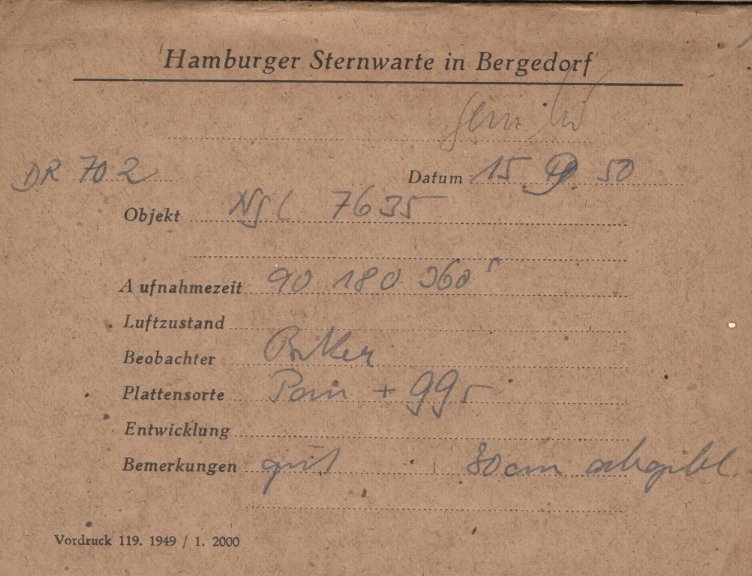 Hamburger Sternwarte in Bergedorf
DR 702
Datum 15. 50
Objekt 7635
Aufnahmezeit 90 180 360 s
Luftzustand
Beobachter
Plattensorte + 99
Entwicklung
Bemerkungen gut 80cm
Vordruck 119. 1949 / 1. 2000